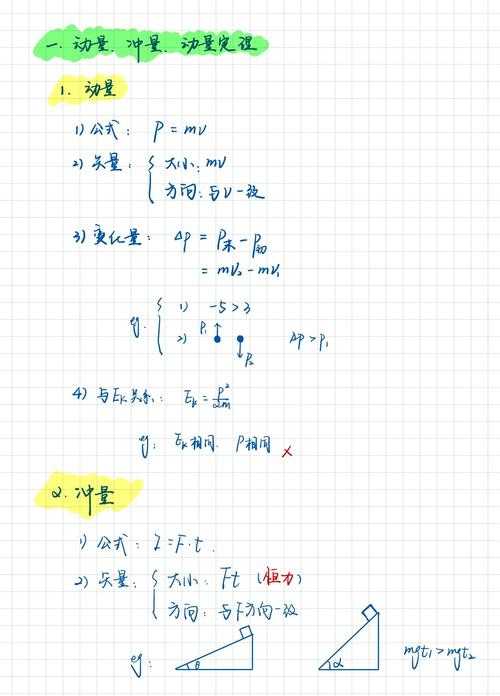 一. 动量、冲量、动量定理
1. 动量
1) 公式: P = mv
2) 矢量: { 大小: mv
方向: 与v一致
3) 变化量: Δp = P末 - P初
= mv₂ - mv₁
eg. { 1) -5 > 3
2) P₁ P₂ ΔP > P₁
4) 与Ek关系: Ek = p²/2m
eg: Ek相同. P相同 ×
2. 冲量
1) 公式: I = F·t.
2) 矢量: { 大小: Ft (恒力)
方向: 与F方向一致
eg: θ α mgt₁ > mgt₂